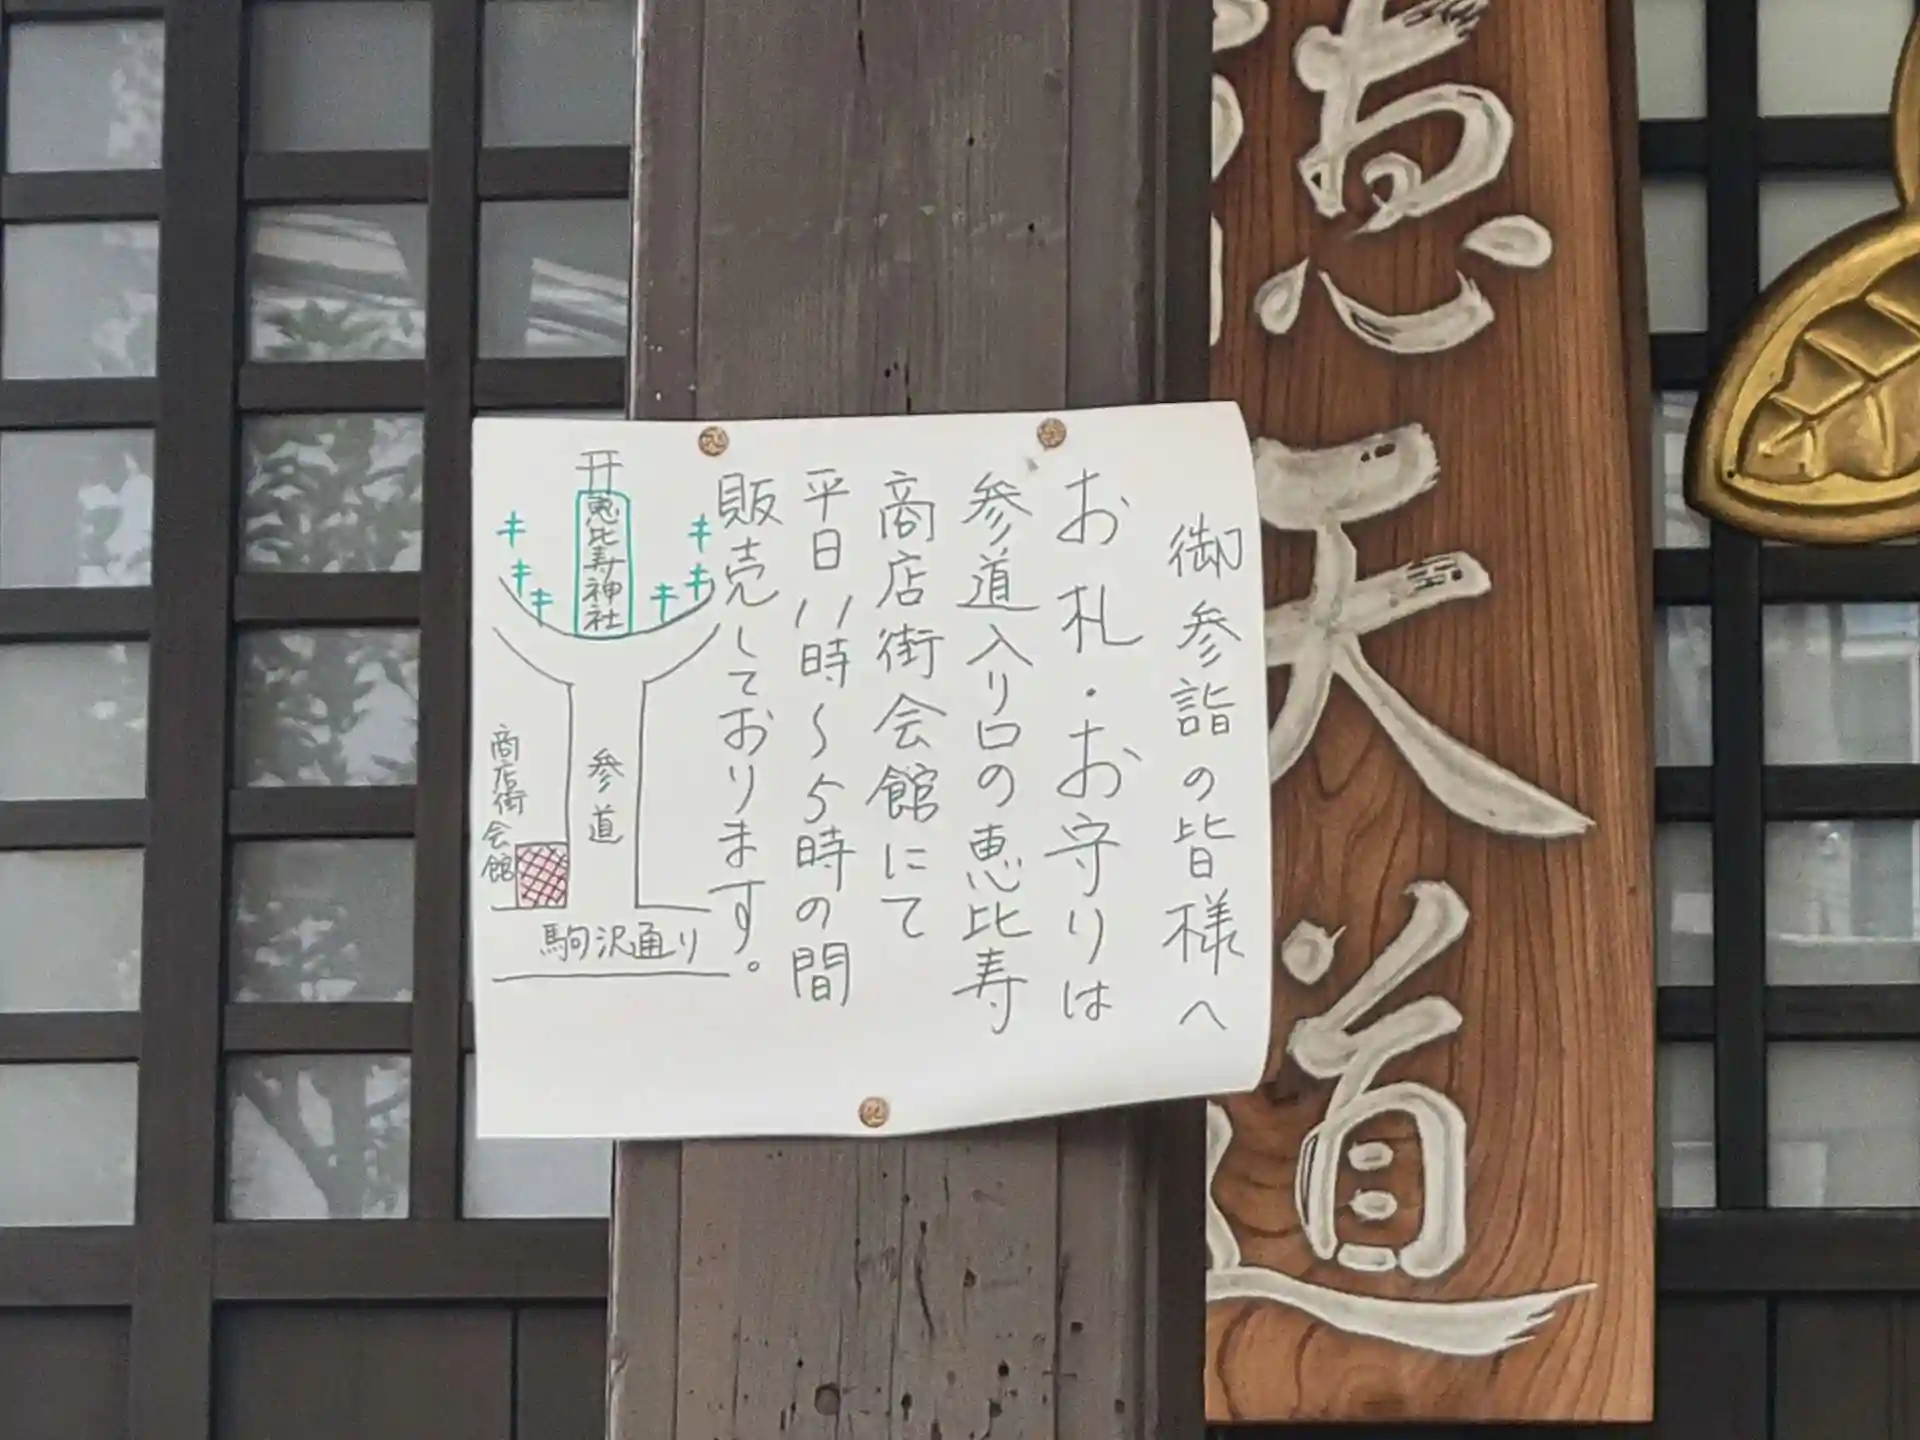 御参詣の皆様へ
お札・お守りは
参道入り口の恵比寿
商店街会館にて
平日11時〜5時の間
販売しております。
开
恵比寿神社
参道
商店街会館
駒沢通り
恵
天
道